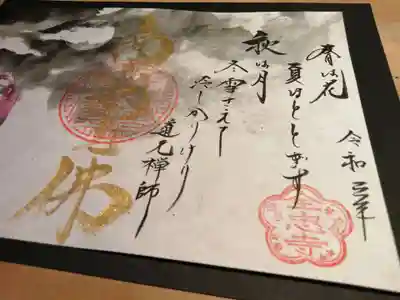 令和三年
春は花
夏ほとゝぎす
秋は月
冬雪さえて
冷しかりけり
道元禅師
佛